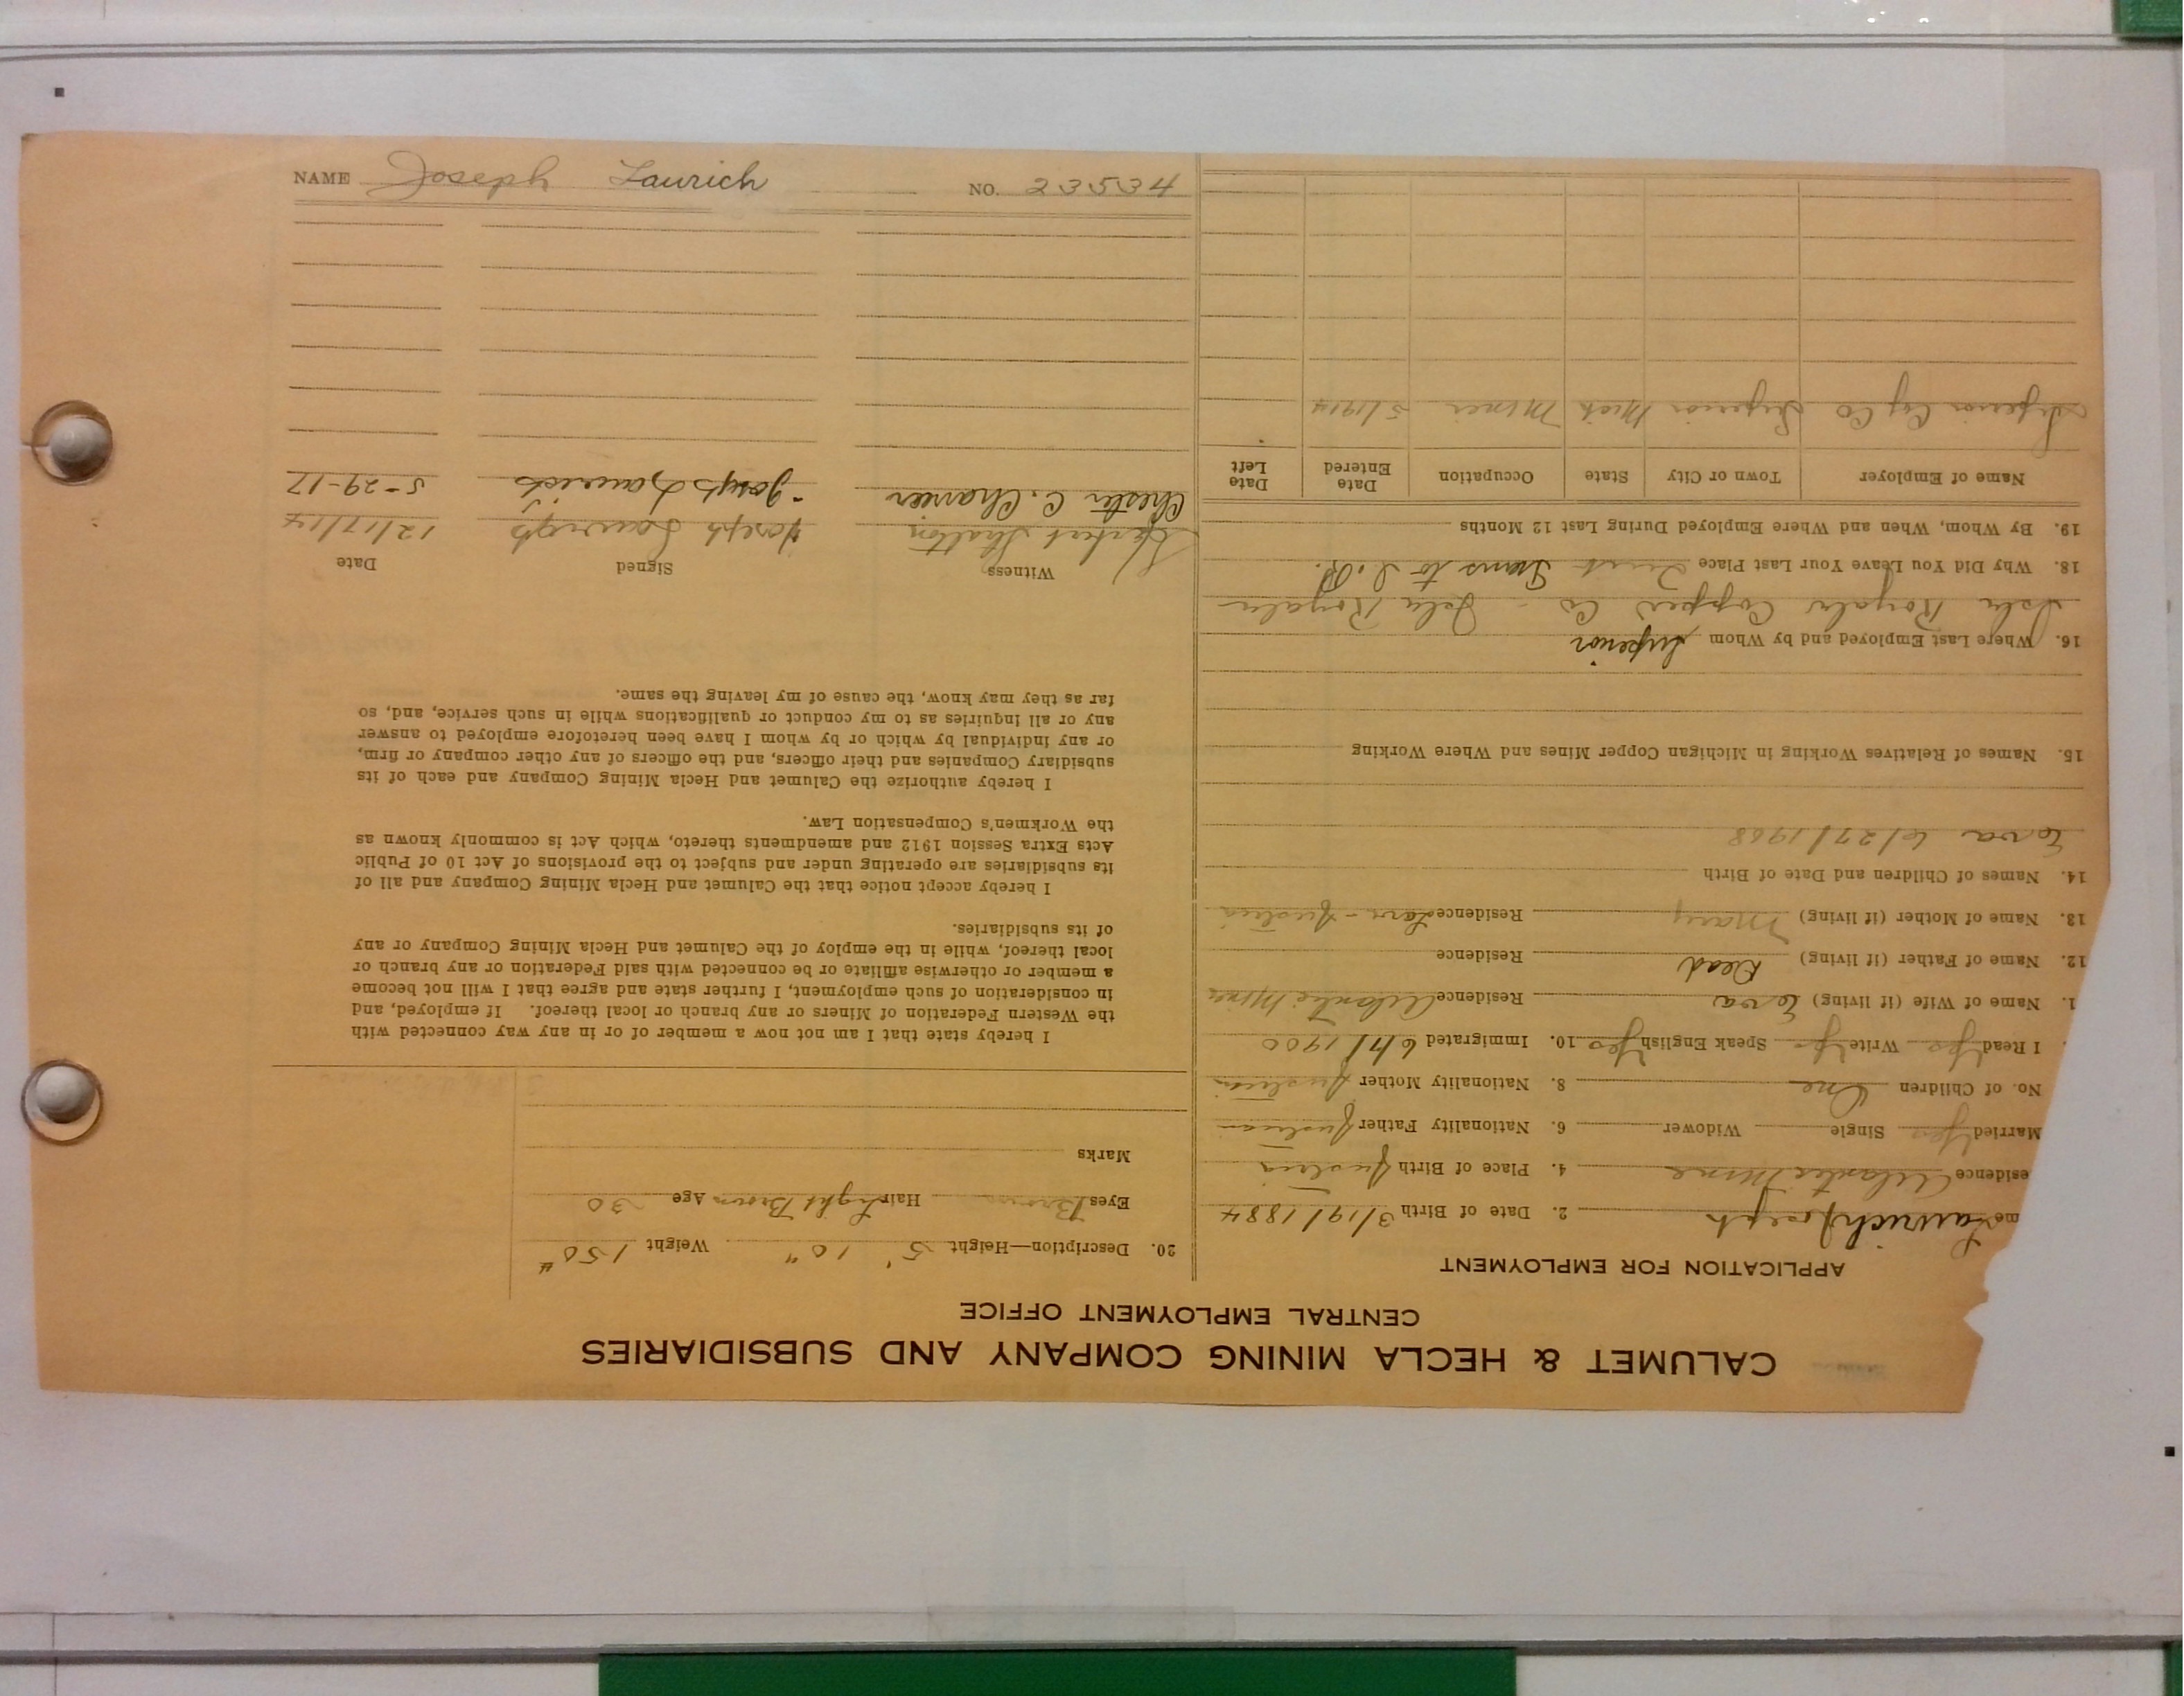 CALUMET & HECLA MINING COMPANY AND SUBSIDIARIES
CENTRAL EMPLOYMENT OFFICE
APPLICATION FOR EMPLOYMENT
me Laurich Joseph 2. Date of Birth 3/19/1884
esidence Atlantic Mine 4. Place of Birth Austria
Married Yes Single Widower 6. Nationality Father Austrian
No. of Children One 8. Nationality Mother Austrian
. I Read Yes Write Yes Speak English Yes 10. Immigrated 6/7/1900
1. Name of Wife (if living) Eva Residence Atlantic Mine
12. Name of Father (if living) Dead Residence
13. Name of Mother (if living) Mary Residence Austria
14. Names of Children and Date of Birth
Eva 6/27/1908
15. Names of Relatives Working in Michigan Copper Mines and Where Working
16. Where Last Employed and by Whom Superior
Isle Royale Copper Co - Isle Royale
18. Why Did You Leave Your Last Place Trans to I.R.
19. By Whom, When and Where Employed During Last 12 Months
Name of Employer Town or City State Occupation Date Entered Date Left
Superior Cop Co Superior Mich Miner 5/1914
20. Description—Height 5' 10" Weight 150 #
Eyes Brown Hair Light Brown Age 30
Marks
I hereby state that I am not now a member of or in any way connected with
the Western Federation of Miners or any branch or local thereof. If employed, and
in consideration of such employment, I further state and agree that I will not become
a member or otherwise affiliate or be connected with said Federation or any branch or
local thereof, while in the employ of the Calumet and Hecla Mining Company or any
of its subsidiaries.
I hereby accept notice that the Calumet and Hecla Mining Company and all of
its subsidiaries are operating under and subject to the provisions of Act 10 of Public
Acts Extra Session 1912 and amendments thereto, which Act is commonly known as
the Workmen's Compensation Law.
I hereby authorize the Calumet and Hecla Mining Company and each of its
subsidiary Companies and their officers, and the officers of any other company or firm,
or any individual by which or by whom I have been heretofore employed to answer
any or all inquiries as to my conduct or qualifications while in such service, and, so
far as they may know, the cause of my leaving the same.
Witness Signed Date
Herbert Joseph Laurich 12/17/14
Chester C. Joseph Laurich 5-29-17
NAME Joseph Laurich NO. 23534